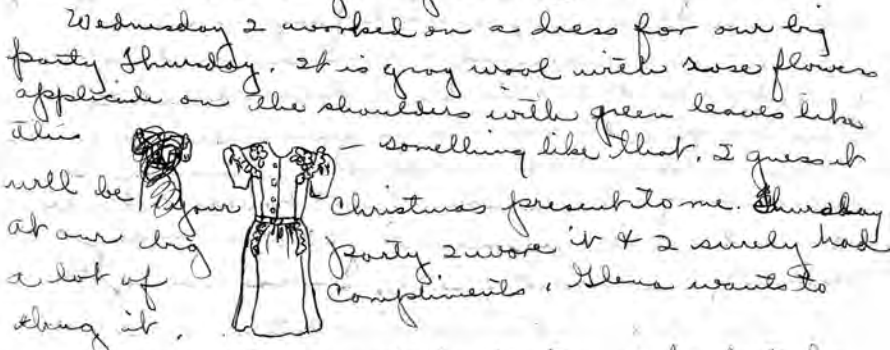 Wednesday I worked on a dress for our big
party Thursday. It is gray wool with rose flowers
applicade on the shoulders with green leaves like
this — something like that. I guess it
will be your Christmas present to me. Thursday
at our big party I wore it & I surely had
a lot of compliments. Glena wants to
it.